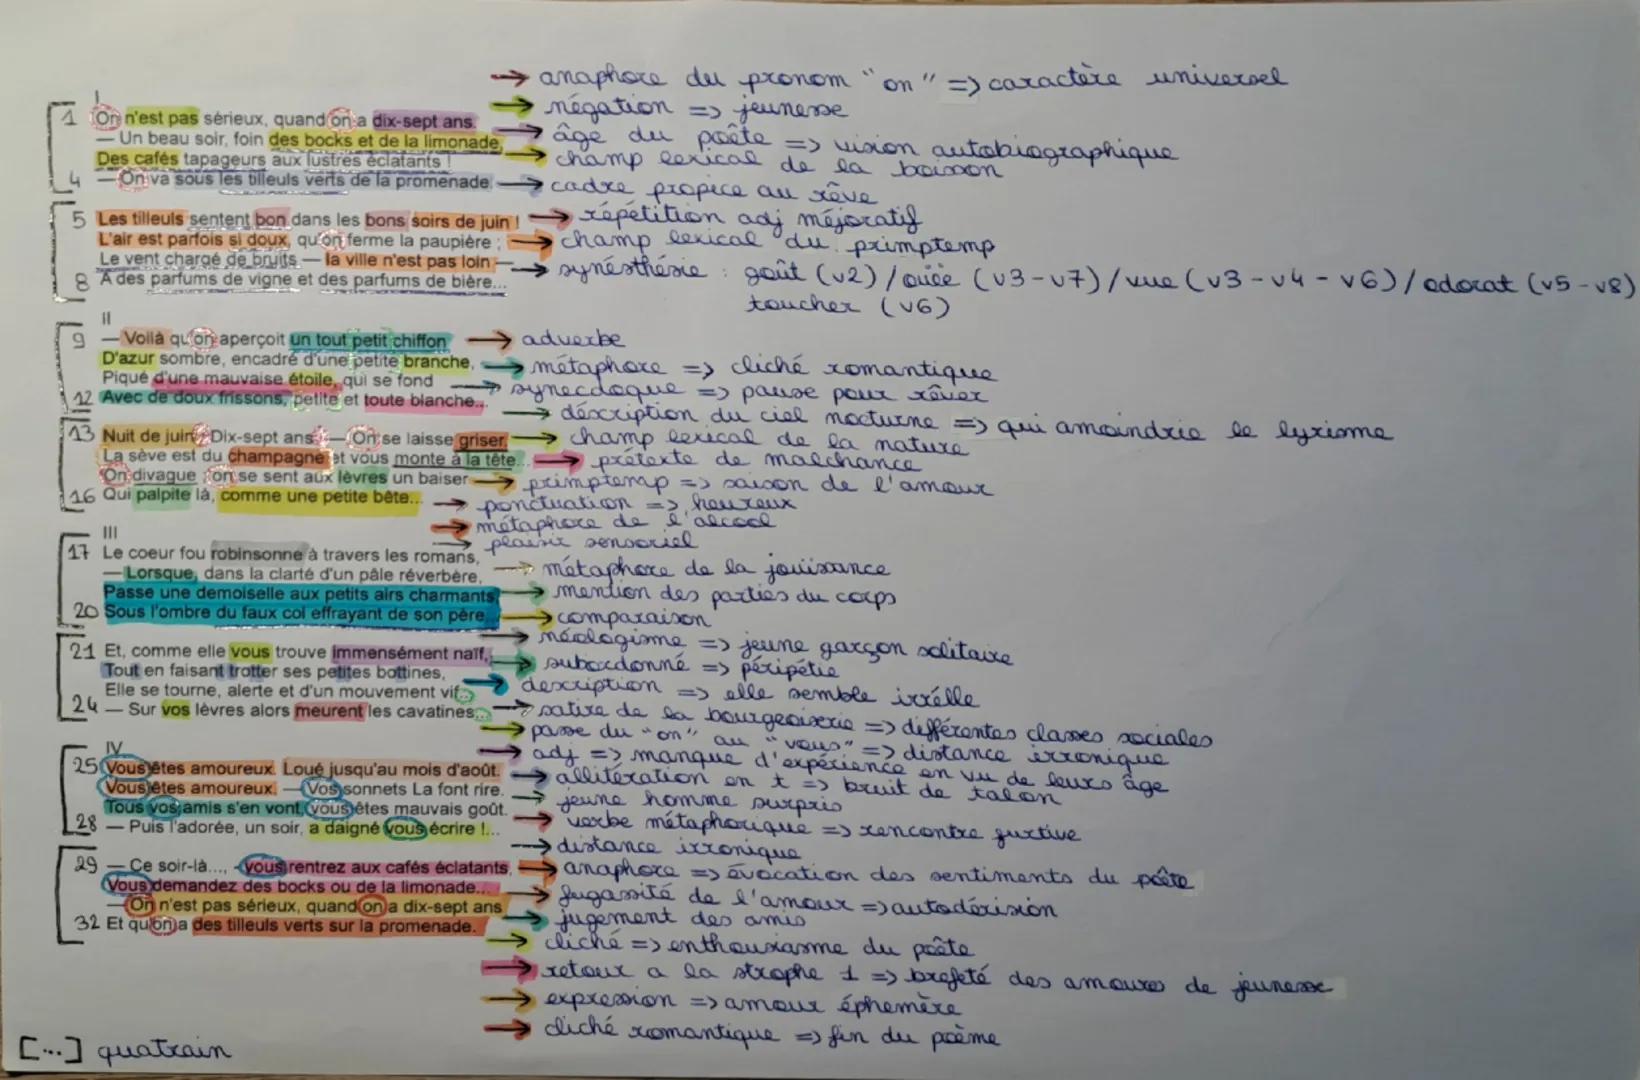 → anaphore du pronom "on" => caractère universel
I → négation => jeunesse
1 On n'est pas sérieux, quand on a dix-sept ans. → âge du poète => vision autobiographique
— Un beau soir, foin des bocks et de la limonade, → champ lexical de la boisson
Des cafés tapageurs aux lustres éclatants !
4 — On va sous les tilleuls verts de la promenade. → cadre propice au rêve
5 Les tilleuls sentent bon dans les bons soirs de juin ! → répétition adj méjoratif
L'air est parfois si doux, qu'on ferme la paupière ; → champ lexical du primptemp
Le vent chargé de bruits — la ville n'est pas loin — → synésthésie : goût (v2) / ouïe (v3-v7) / vue (v3-v4-v6) / odorat (v5-v8)
8 A des parfums de vigne et des parfums de bière... toucher (v6)
II
9 — Voilà qu'on aperçoit un tout petit chiffon → adverbe
D'azur sombre, encadré d'une petite branche, → métaphore => cliché romantique
Piqué d'une mauvaise étoile, qui se fond → synecdoque => pause pour rêver
12 Avec de doux frissons, petite et toute blanche... → déscription du ciel nocturne => qui amoindrie le lyrisme
13 Nuit de juin ! Dix-sept ans ! — On se laisse griser. → champ lexical de la nature
La sève est du champagne et vous monte à la tête... → prétexte de malchance
On divague ; on se sent aux lèvres un baiser → primptemp => saison de l'amour
16 Qui palpite là, comme une petite bête... → ponctuation => heureux
→ métaphore de l'alcool
III → plaisir sensoriel
17 Le coeur fou robinsonne à travers les romans, → métaphore de la jouissance
— Lorsque, dans la clarté d'un pâle réverbère,
Passe une demoiselle aux petits airs charmants, → mention des parties du corps
20 Sous l'ombre du faux col effrayant de son père... → comparaison
→ néologisme => jeune garçon solitaire
21 Et, comme elle vous trouve immensément naïf, → subordonné => péripétie
Tout en faisant trotter ses petites bottines,
Elle se tourne, alerte et d'un mouvement vif... → description => elle semble irréelle
24 — Sur vos lèvres alors meurent les cavatines... → satire de la bourgeoiserie => différentes classes sociales
→ passe du "on" au "vous" => distance irronique
IV → adj => manque d'expérience en vu de leurs âge
25 Vous êtes amoureux. Loué jusqu'au mois d'août. → allitération en t => bruit de talon
Vous êtes amoureux. — Vos sonnets La font rire. → jeune homme surpris
Tous vos amis s'en vont, vous êtes mauvais goût.
28 — Puis l'adorée, un soir, a daigné vous écrire !... → verbe métaphorique => rencontre furtive
→ distance irronique
29 — Ce soir-là..., - vous rentrez aux cafés éclatants, → anaphore => évocation des sentiments du poète
Vous demandez des bocks ou de la limonade... → fugassité de l'amour => autodérision
— On n'est pas sérieux, quand on a dix-sept ans → jugement des amis
32 Et qu'on a des tilleuls verts sur la promenade.
→ cliché => enthousiasme du poête
→ retour a la strophe 1 => brefeté des amours de jeunesse
→ expression => amour éphemère
→ cliché romantique => fin du poème
[...] quatrain